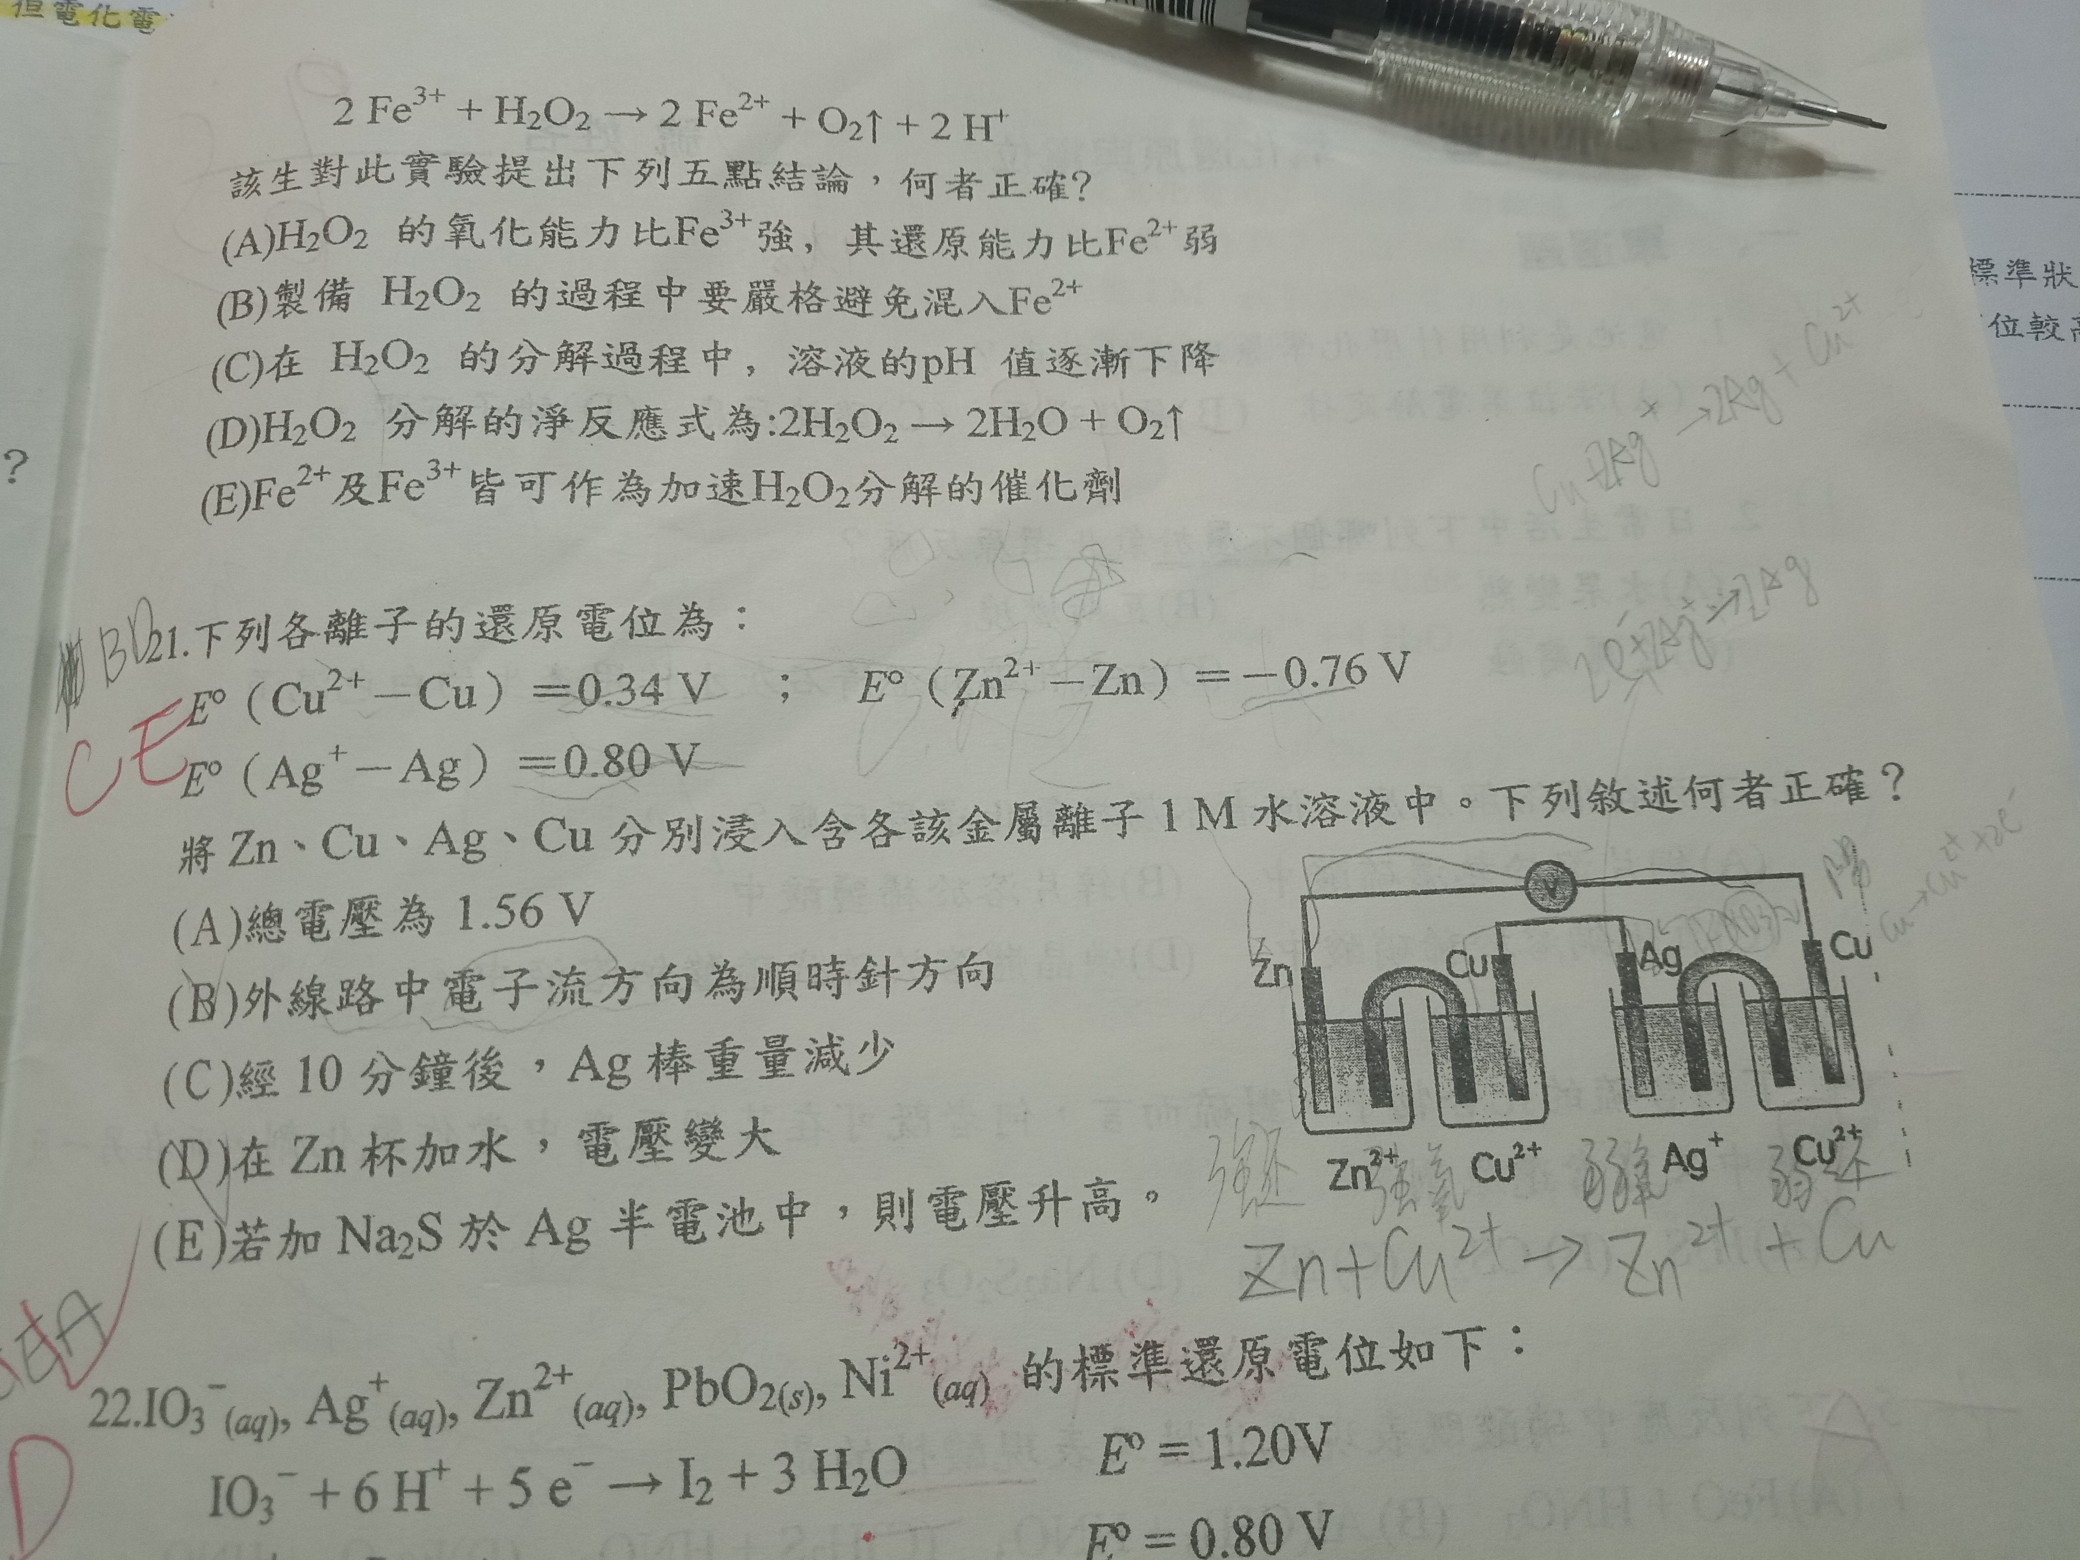 但電化電
2 Fe³⁺ + H₂O₂ → 2 Fe²⁺ + O₂↑ + 2 H⁺
該生對此實驗提出下列五點結論，何者正確?
(A)H₂O₂ 的氧化能力比Fe³⁺強，其還原能力比Fe²⁺弱
(B)製備 H₂O₂ 的過程中要嚴格避免混入Fe²⁺
(C)在 H₂O₂ 的分解過程中，溶液的pH 值逐漸下降
(D)H₂O₂ 分解的淨反應式為:2H₂O₂ → 2H₂O + O₂↑
(E)Fe²⁺及Fe³⁺皆可作為加速H₂O₂分解的催化劑
標準狀
位較高
?
Cu+2Ag⁺→2Ag+Cu²⁺
2e⁻+2Ag⁺→2Ag
BD
CE
21.下列各離子的還原電位為：
E°（Cu²⁺－Cu）＝0.34 V ； E°（Zn²⁺－Zn）＝－0.76 V
E°（Ag⁺－Ag）＝0.80 V
將 Zn、Cu、Ag、Cu 分別浸入含各該金屬離子 1 M 水溶液中。下列敘述何者正確？
(A)總電壓為 1.56 V
(B)外線路中電子流方向為順時針方向
(C)經 10 分鐘後，Ag 棒重量減少
(D)在 Zn 杯加水，電壓變大
(E)若加 Na₂S 於 Ag 半電池中，則電壓升高。
V
Zn Cu Ag Cu
Cu→Cu²⁺+2e⁻
Zn²⁺ Cu²⁺ Ag⁺ Cu²⁺
強還 強氧 弱氧 弱還
Zn+Cu²⁺→Zn²⁺+Cu
D
22.IO₃⁻(aq), Ag⁺(aq), Zn²⁺(aq), PbO₂(s), Ni²⁺(aq) 的標準還原電位如下：
IO₃⁻ + 6 H⁺ + 5 e⁻ → I₂ + 3 H₂O E° = 1.20V
E° = 0.80 V